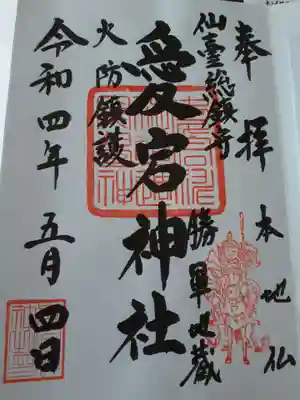 奉拝
本地仏
仙臺總鎮守
勝軍地蔵
愛宕神社
火防鎮護
令和四年 五月 四日